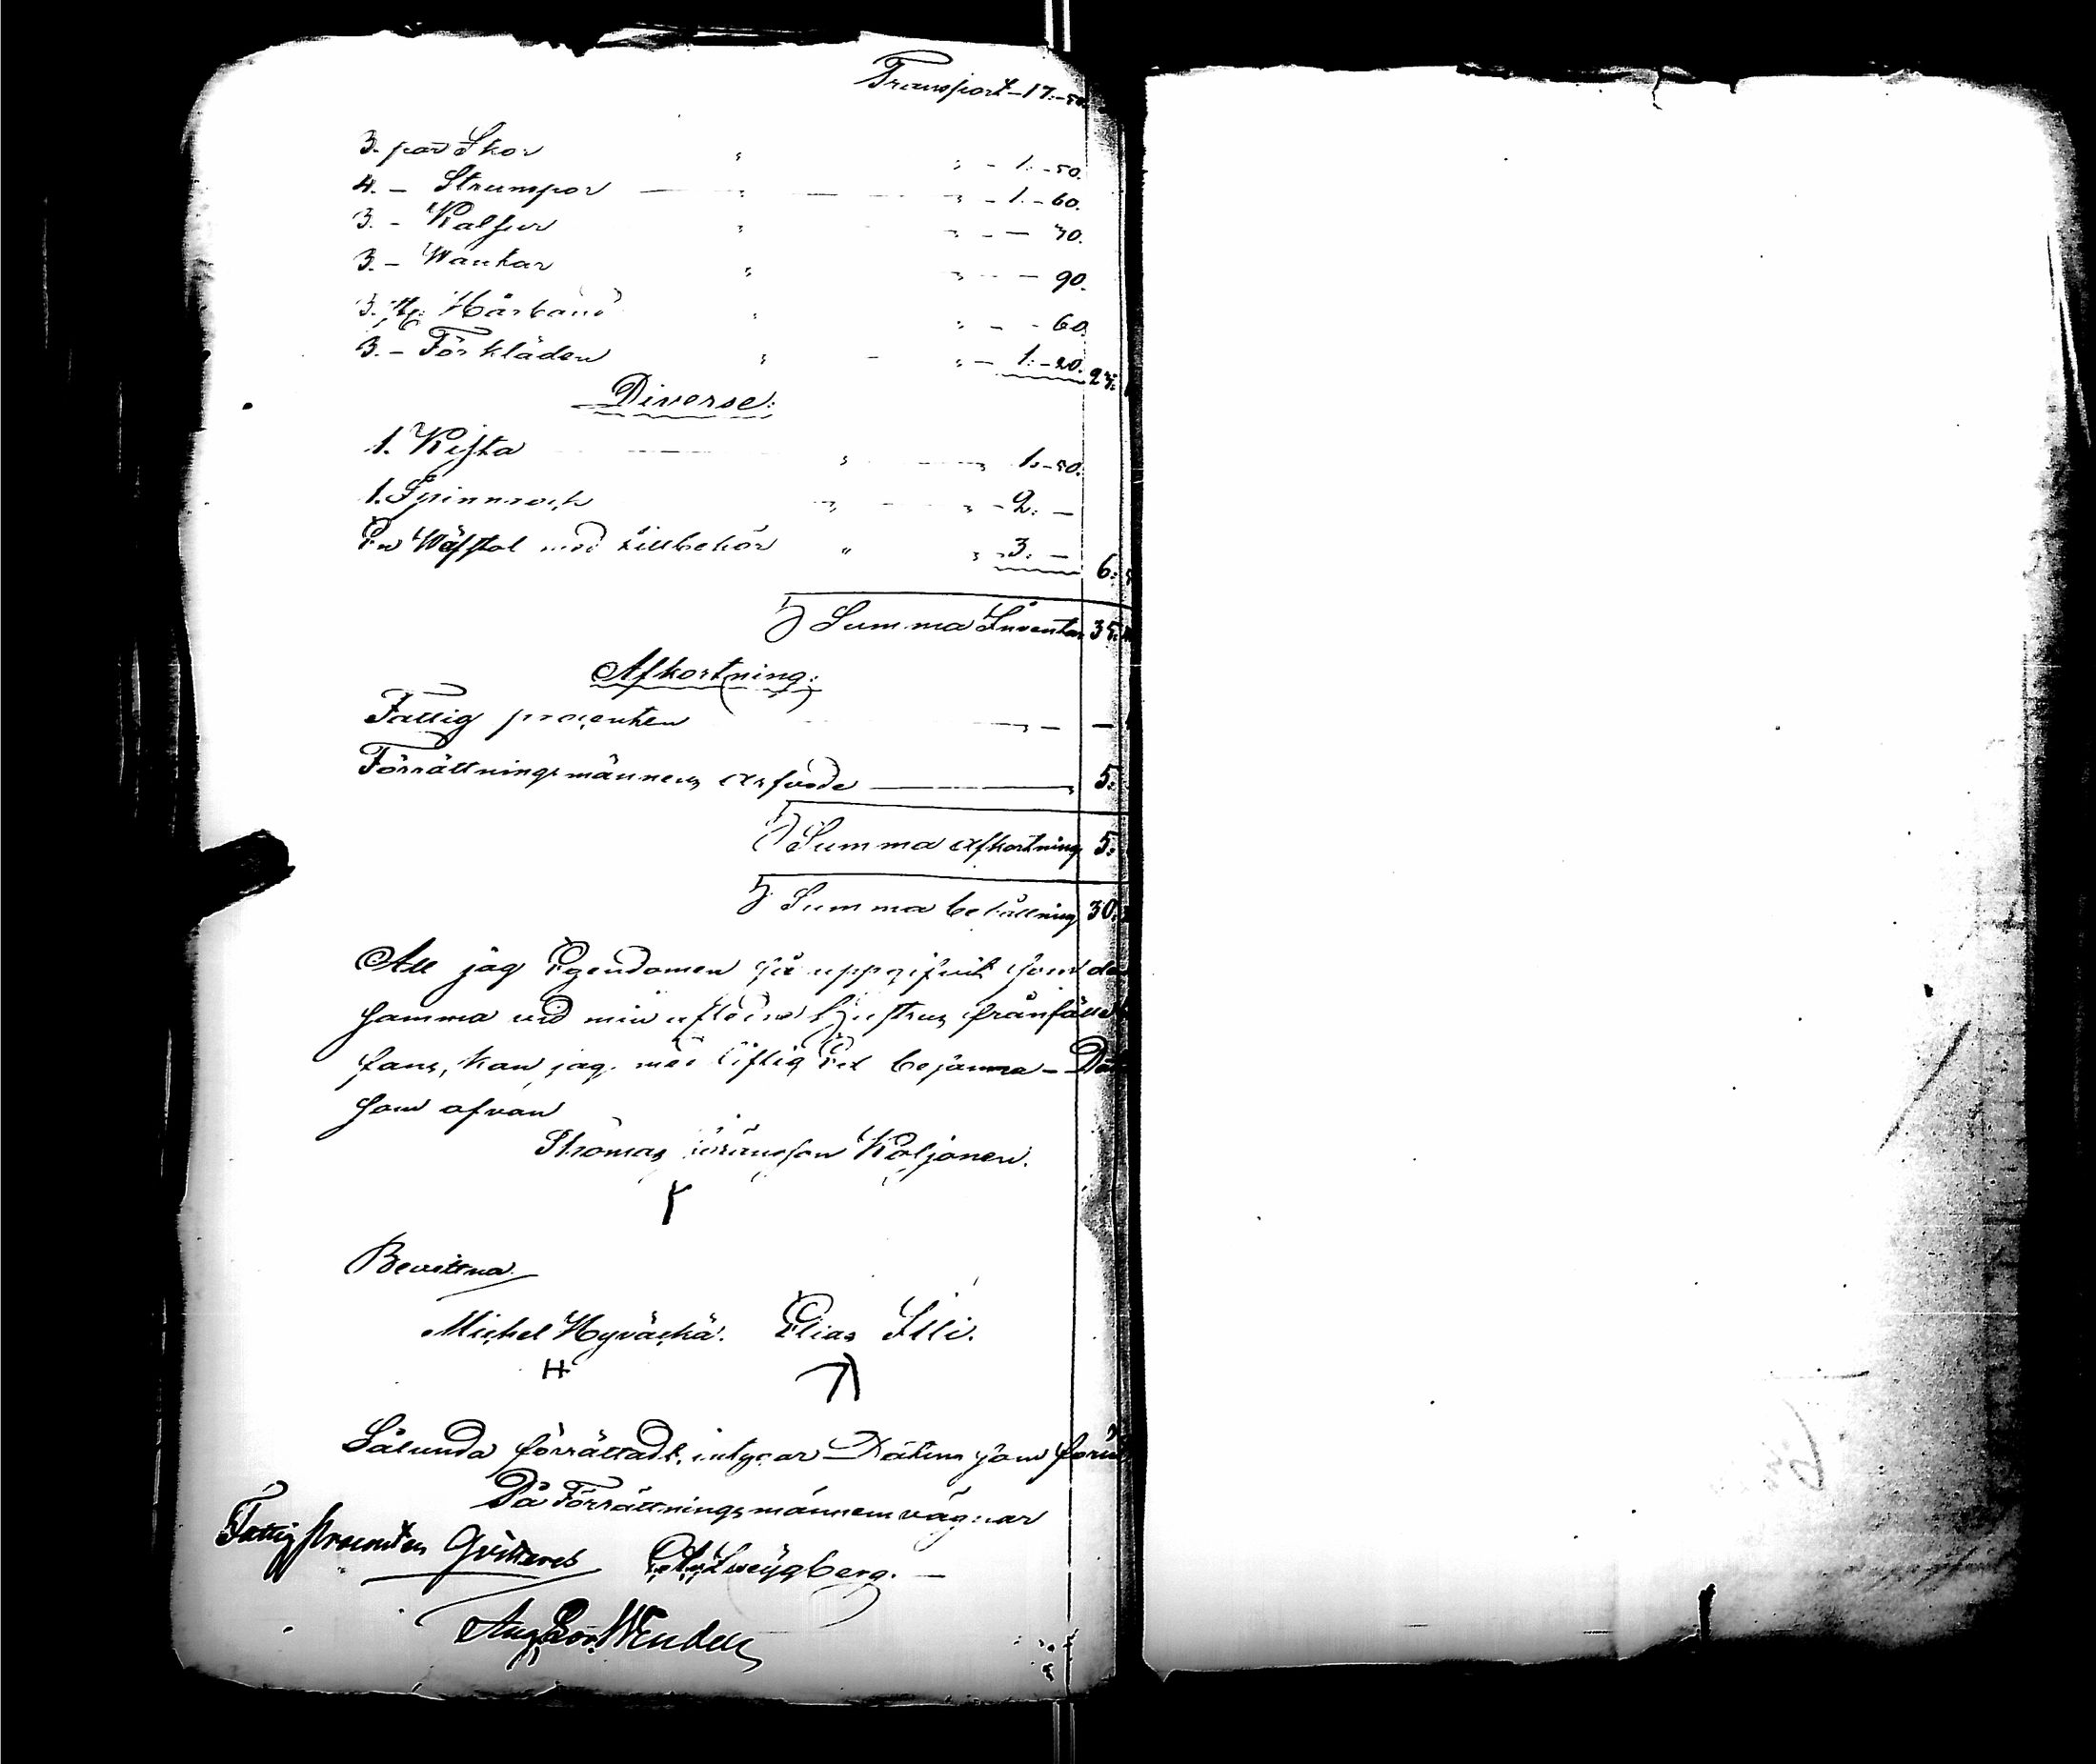 Transport – 17:–50.
3. par Skor " " – 1:–50.
4. – Strumpor — " — " – 1:–60.
3. – Kalsur " " – — 70.
3. – Wantar " " – — 90.
3. st: Hårband " " – – 60.
3. – Förkläden " – " – 1:–20. 27:
Diverse:
1. Kista " — " 1:–50.
1. Spinnrock " – " – 2: –
En Wäfstol med tillbehör " " 3: – 6:
Summa Inventar 35:
Afkortning:
Fattig procenten " – –
Förrättningsmännens arfvode — " 5:
Summa afkortning 5:
Summa behållning 30:
Att jag Egendomen så uppgifvit som den
samma vid min aflidna hustrus frånfälle
fans, kan jag med liflig Ed bejanna – Dat
som ofvan
Thomas Göransson Koljonen.
Bevittna
Michel Hyväckä. Elias Illi.
H
Sålunda förrättadt, intygar – Datum som förut
På Förrättningsmännens vägnar
Fattigprocenten Qvitteras
Zweygberg. –
Aug Wendell